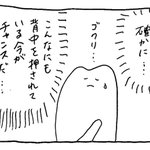 確かに…
ゴクリ…
こんなにも
背中を押されて
いる今が
チャンスだ…